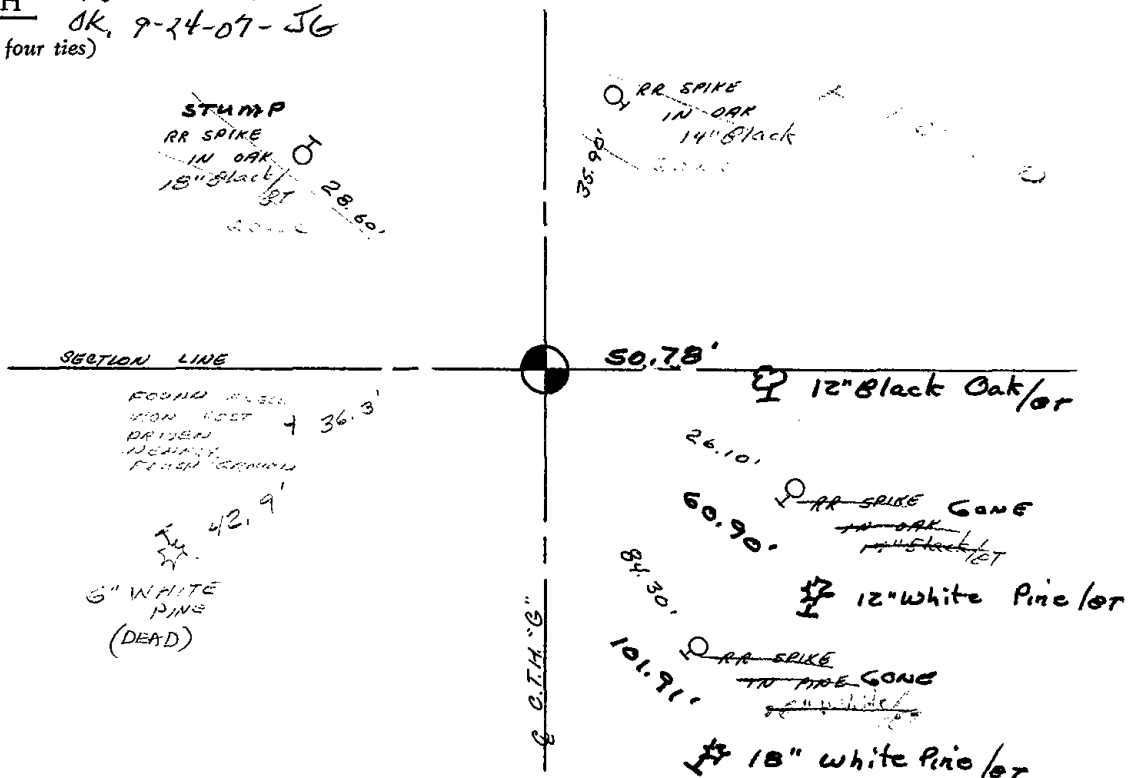 H
OK, 9-24-07- JG
four ties)
STUMP
RR SPIKE
IN OAK
18" Black/
BT
28.60'
RR SPIKE
IN OAK
14" Black
35.90'
SECTION LINE
50.78'
12" Black Oak/BT
FOUND
IRON POST
DRIVEN
NEARLY
FLUSH GROUND
36.3'
42.9'
6" WHITE
PINE
(DEAD)
26.10'
RR SPIKE GONE
IN OAK
Black/BT
60.90'
12" White Pine/BT
84.30'
RR SPIKE
IN PINE GONE
White/
101.91'
18" White Pine/BT
℄ C.T.H. "G"